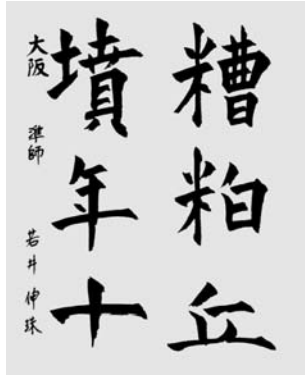 糟粕丘
墳年十
大阪 準師 若井伸珠